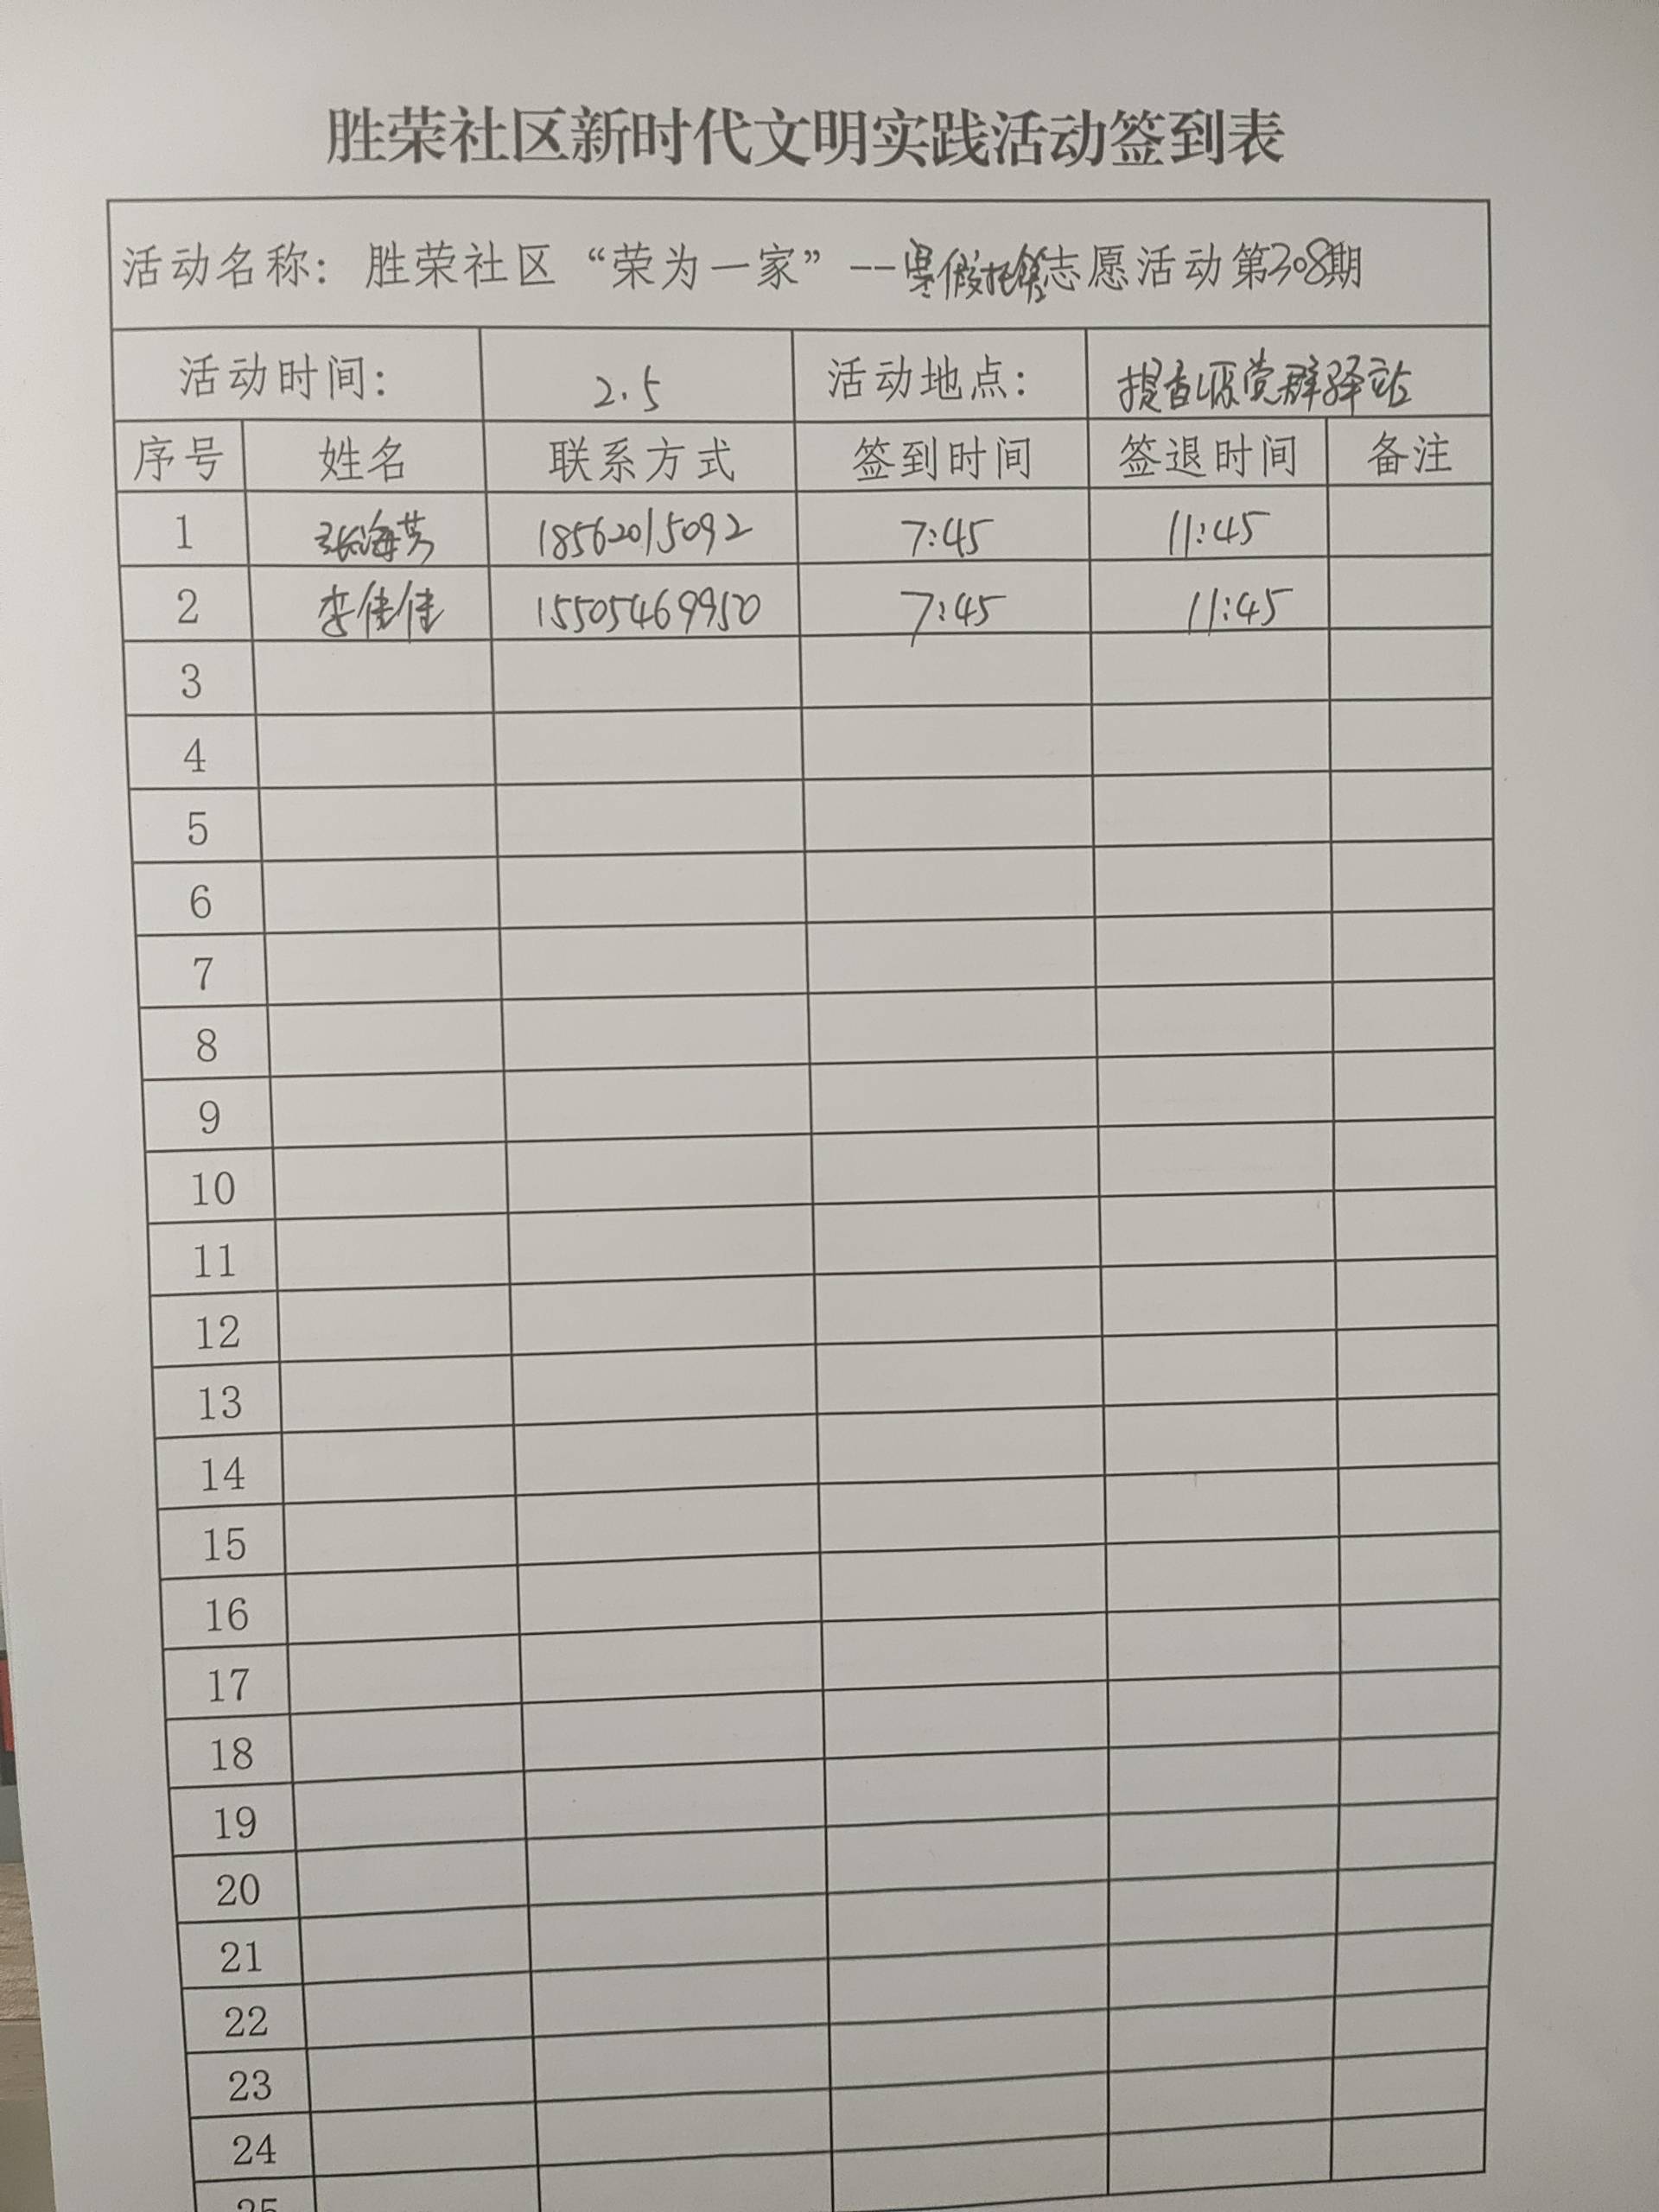 胜荣社区新时代文明实践活动签到表
活动名称：胜荣社区“荣为一家”--寒假托管志愿活动第308期
活动时间： 2.5 活动地点： 提香源党群驿站
序号 姓名 联系方式 签到时间 签退时间 备注
1 张海芳 18562015092 7:45 11:45
2 李佳佳 15505469950 7:45 11:45
3
4
5
6
7
8
9
10
11
12
13
14
15
16
17
18
19
20
21
22
23
24
25